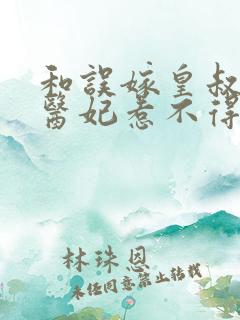 和誤嫁皇叔
醫妃惹不得
林珠恩
未經同意禁止轉載